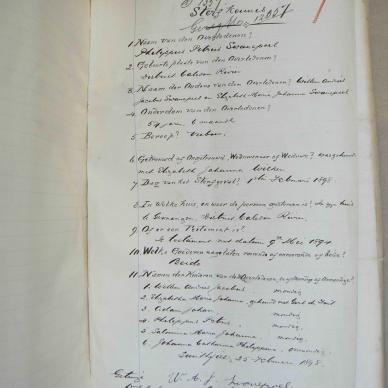 Sterf Kennis
12057
1. Naam van den Overledenen?
Philippus Petrus Swanepoel
2. Geboorte plaats van den Overledenen?
District Caledon River
3. Naam der Ouders van den Overledenen? Willem Andries
Jacobus Swanepoel en Elizabeth Maria Johanna Swanepoel
4. Ouderdom van den Overledenen?
54 jaar 6 maanden
5. Beroep? Veeboer
6. Getrouwd of Ongetrouwd, Weduwenaar of Weduwe?
met Elizabeth Johanna
7. Dag van het Sterfgeval? 1ste Februari 1898.
8. In Welke huis, en waar de persoon overleden is? In zyn huis
District Caledon River
9. Of er een Testament is?
Ja testament met datum 9de Mei 1894
10. Welke Goederen nagelaten, roerende of onroerende of beide?
Beide
11. Namen der Kinderen van de Overledenen, mondig of onmondig?
1. Willem Andries Jacobus, mondig
2. Elizabeth Maria Johanna, gehuwd met
3. Adam Johan mondig
4. Philippus Petrus, mondig
5. Salomina Maria Johanna, mondig
6. Johanna Catharina Philippina, onmondig
25 Februari 1898
Getuige W. A. J. Swanepoel